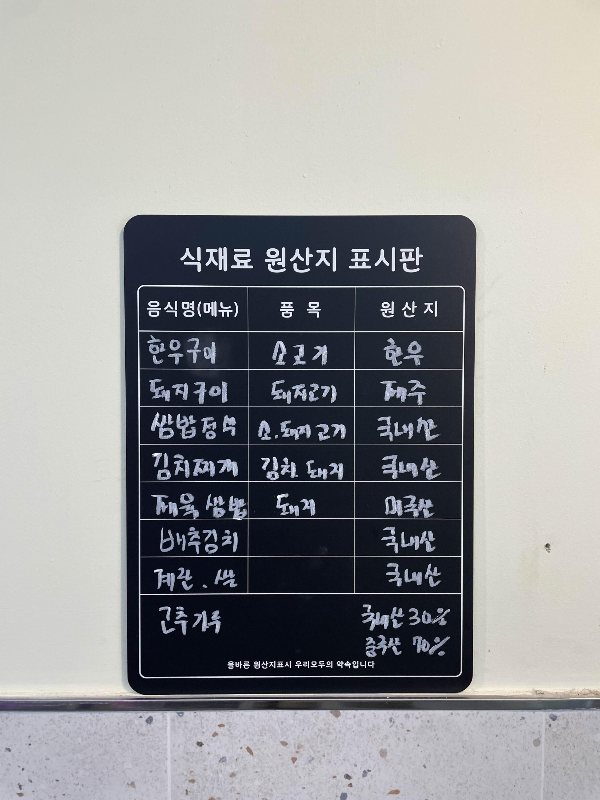 식재료 원산지 표시판
음식명(메뉴) 품 목 원 산 지
한우구이 소고기 한우
돼지구이 돼지고기 제주
쌈밥정식 소.돼지고기 국내산
김치찌개 김치.돼지 국내산
제육쌈밥 돼지 미국산
배추김치 국내산
계란.쌀 국내산
고추가루 국내산 30%
중국산 70%
올바른 원산지표시 우리모두의 약속입니다